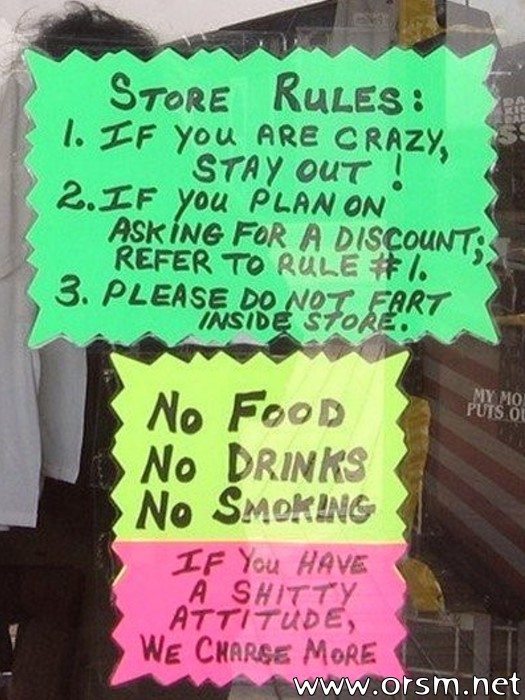 STORE RULES:
1. IF YOU ARE CRAZY,
STAY OUT!
2. IF YOU PLAN ON
ASKING FOR A DISCOUNT;
REFER TO RULE #1.
3. PLEASE DO NOT FART
INSIDE STORE.
NO FOOD
NO DRINKS
NO SMOKING
IF YOU HAVE
A SHITTY
ATTITUDE,
WE CHARGE MORE
MY
PUTS
www.orsm.net